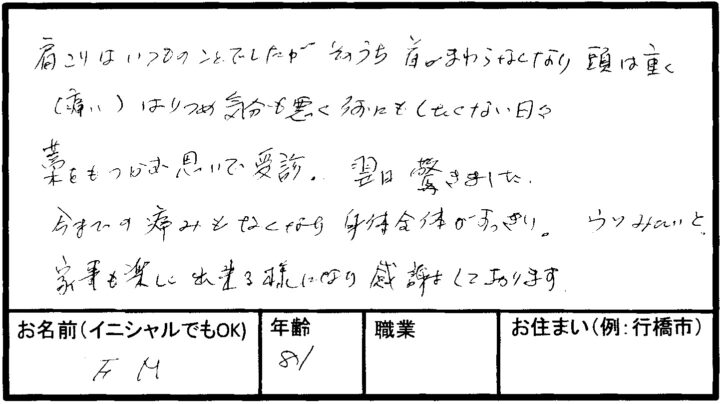 肩こりはいつものことでしたが そのうち 首がまわらなくなり 頭は重く
(痛い) はりつめ 気分も悪く 何にもしたくない日々
藁をもつかむ思いで受診。 翌日 驚きました。
今までの痛みもなくなり 身体全体がすっきり。 ウソみたいと、
家事も楽しく出来る様になり 感謝をしております。
お名前(イニシャルでもOK) 年齢 職業 お住まい(例:行橋市)
F M 81